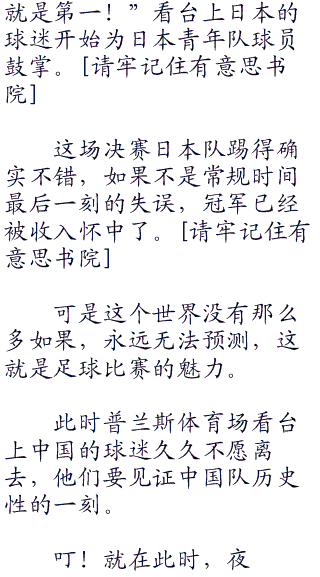 就是第一！”看台上日本的
球迷开始为日本青年队球员
鼓掌。[请牢记住有意思书
院]
这场决赛日本队踢得确
实不错，如果不是常规时间
最后一刻的失误，冠军已经
被收入怀中了。[请牢记住有
意思书院]
可是这个世界没有那么
多如果，永远无法预测，这
就是足球比赛的魅力。
此时普兰斯体育场看台
上中国的球迷久久不愿离
去，他们要见证中国队历史
性的一刻。
叮！就在此时，夜